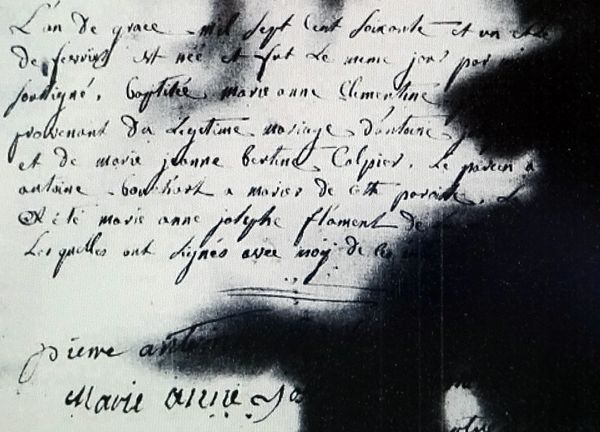 L'an de grace mil sept cent soixante et un et le
de fevrier est née et fut le meme jour par
soussigné, baptisée marie anne Clementine
provenant du Legitime mariage d'antoine
et de marie jeanne bertine Calpier. Le parein a
antoine bouchart a marier de cette paroisse, L
at été marie anne josephe flament de
Lesquelles ont signés avec moy de ces
pierre antoine
Marie anne Jo